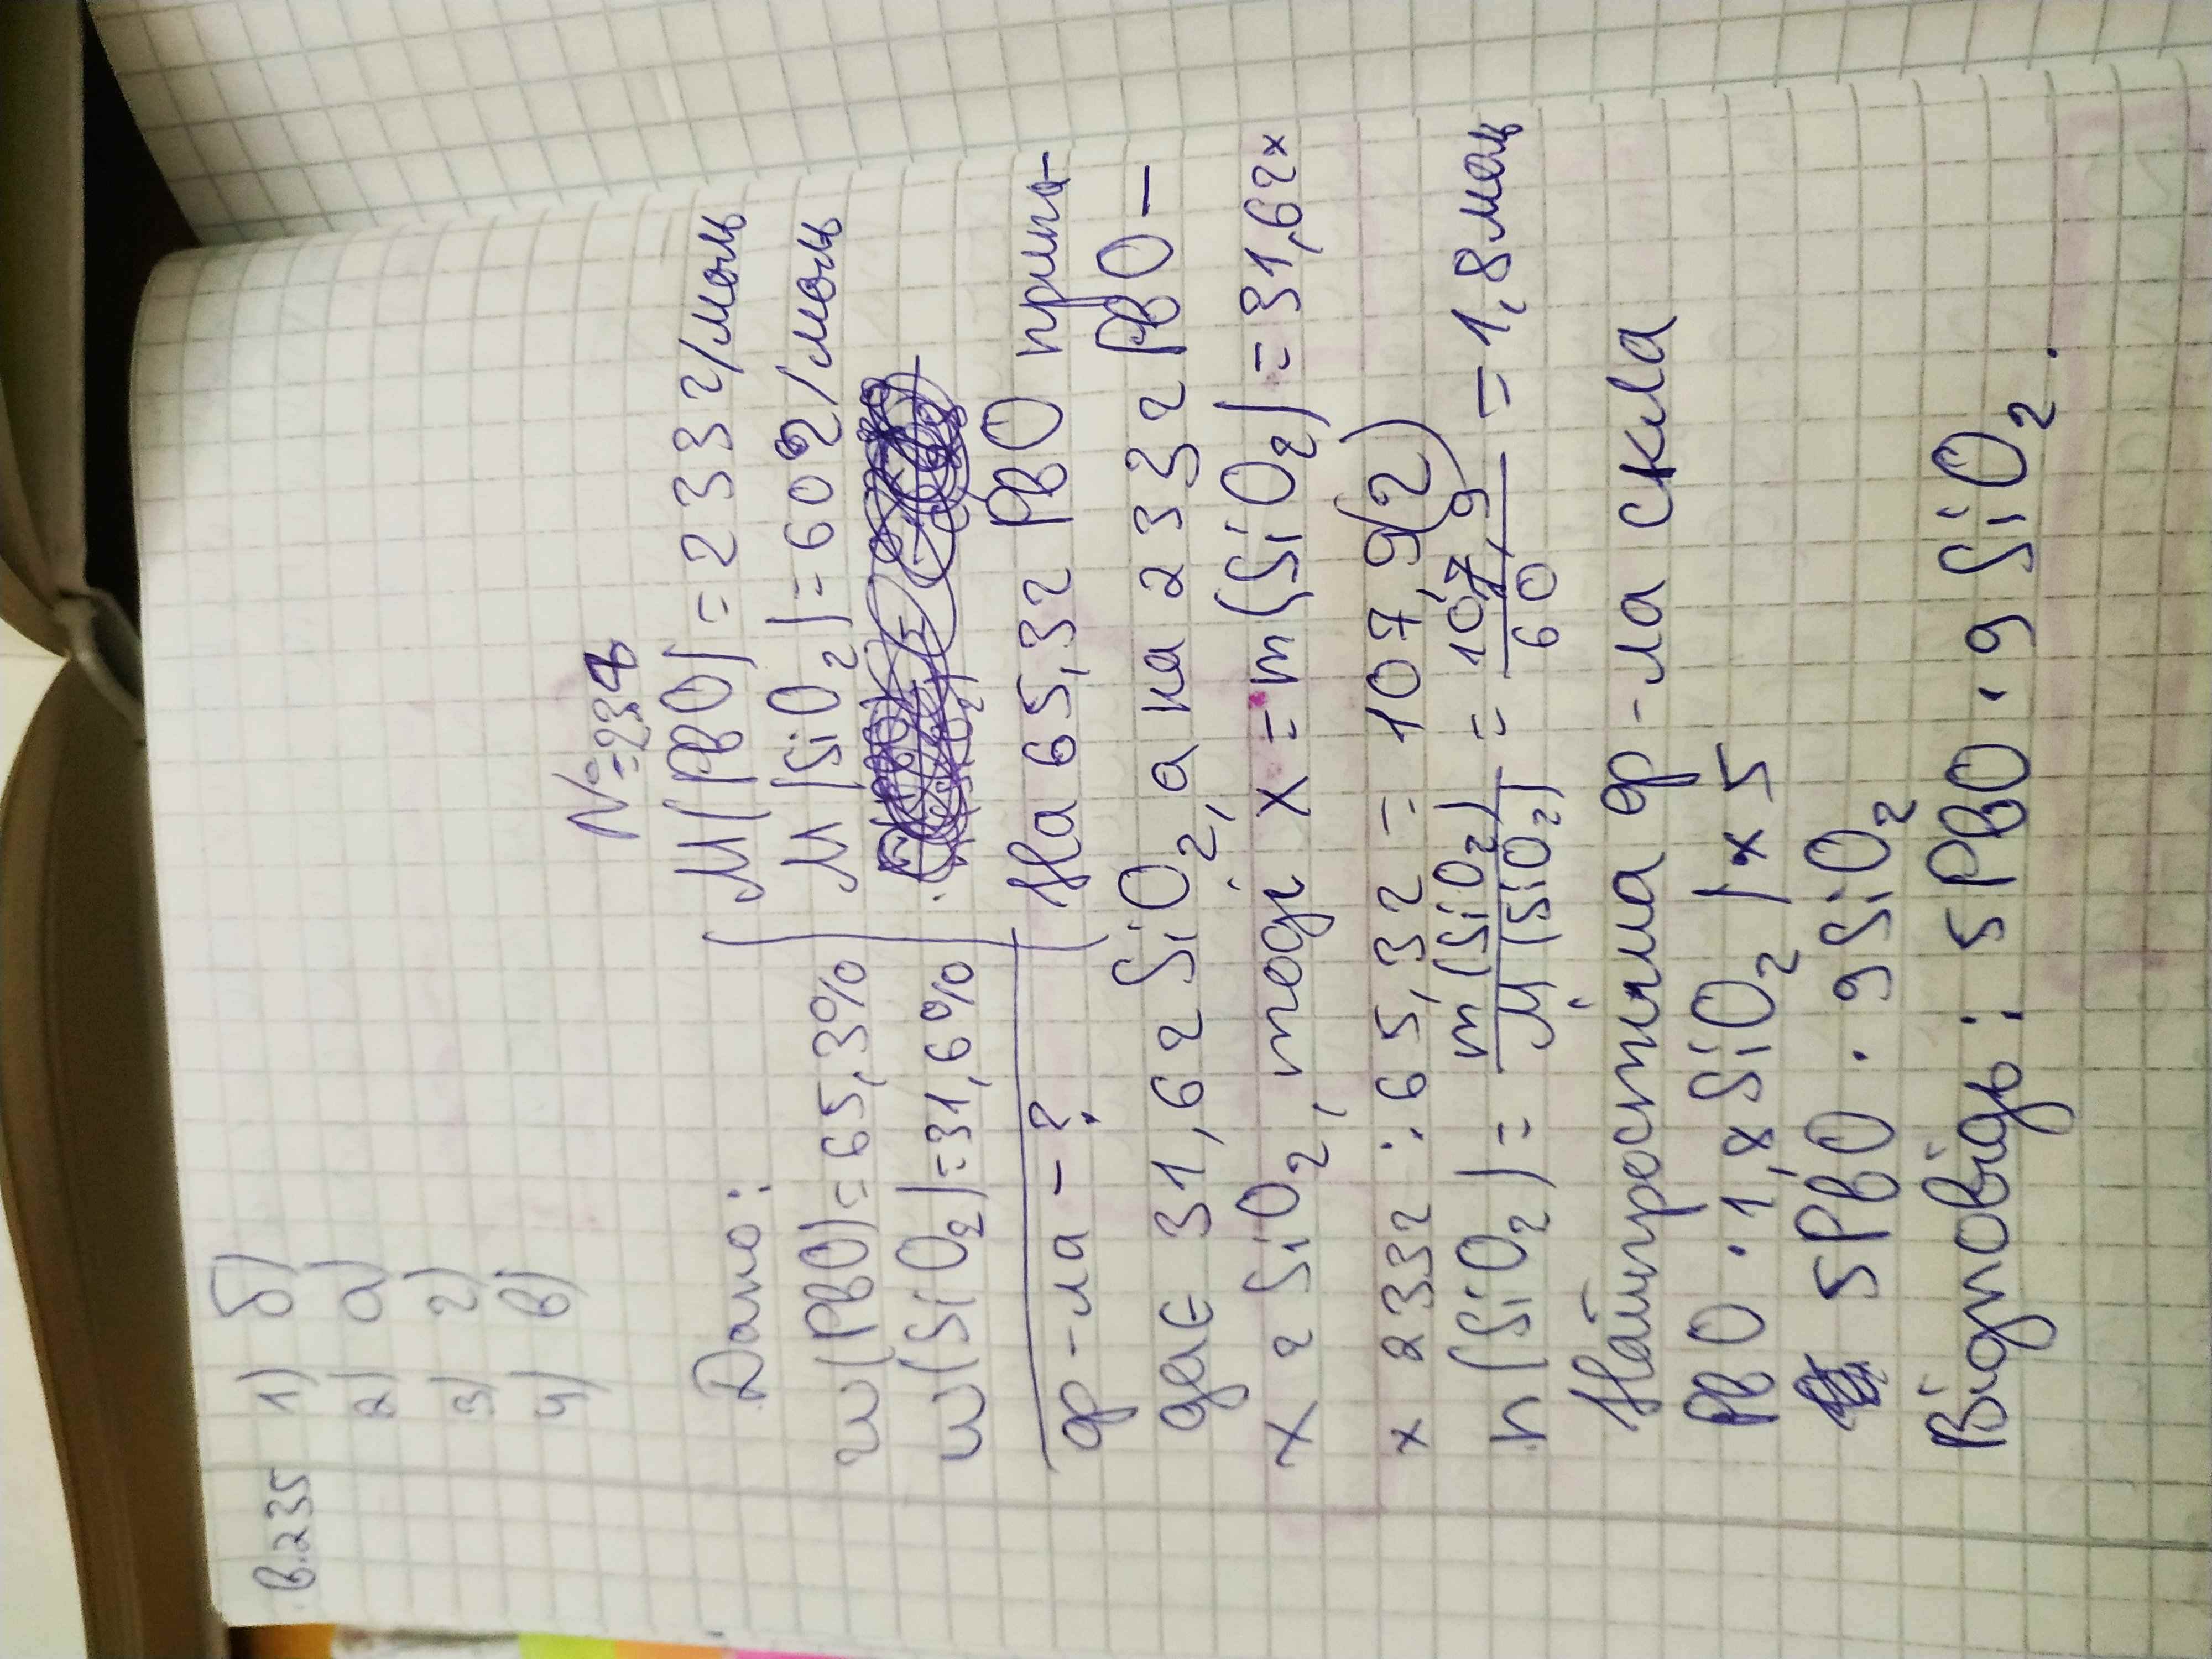 В.235 1) б)
2) а)
3) г)
4) в)
№234
Дано:
w(PbO)=65,3%
w(SiO2)=31,6%
ф-ла - ?
M(PbO)=233г/моль
M(SiO2)=60г/моль
На 65,3г PbO припа-
дає 31,6г SiO2, а на 233г PbO -
x г SiO2, тоді x = m(SiO2) = 31,6г x
x 233г : 65,3г = 107,9(г)
n(SiO2) = m(SiO2)/M(SiO2) = 107,9/60 = 1,8моль
Найпростіша ф-ла скла
PbO · 1,8 SiO2 / x 5
5PbO · 9SiO2
Відповідь: 5PbO · 9SiO2.